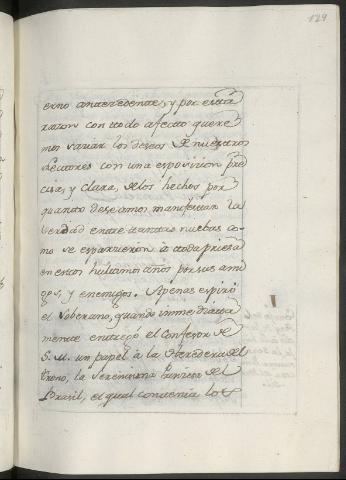 129
erno antecedente, y por esta
razon con todo afecto quere
mos saciar los deseos de nuestros
Lectores con una esposicion pre
cisa, y clara, de los hechos por
quanto deseamos manifestar la
verdad entre tantas nuebas co
mo se esparcieron à toda priesa
en estos hultimos años por sus ami
gos, y enemigos. Apenas espiró
el Soberano, quando immediata
mente entregó el Confesor de
S. M. un papel à la Heredera del
trono, la Serenisima Princesa del
Brasil, el qual contenia los